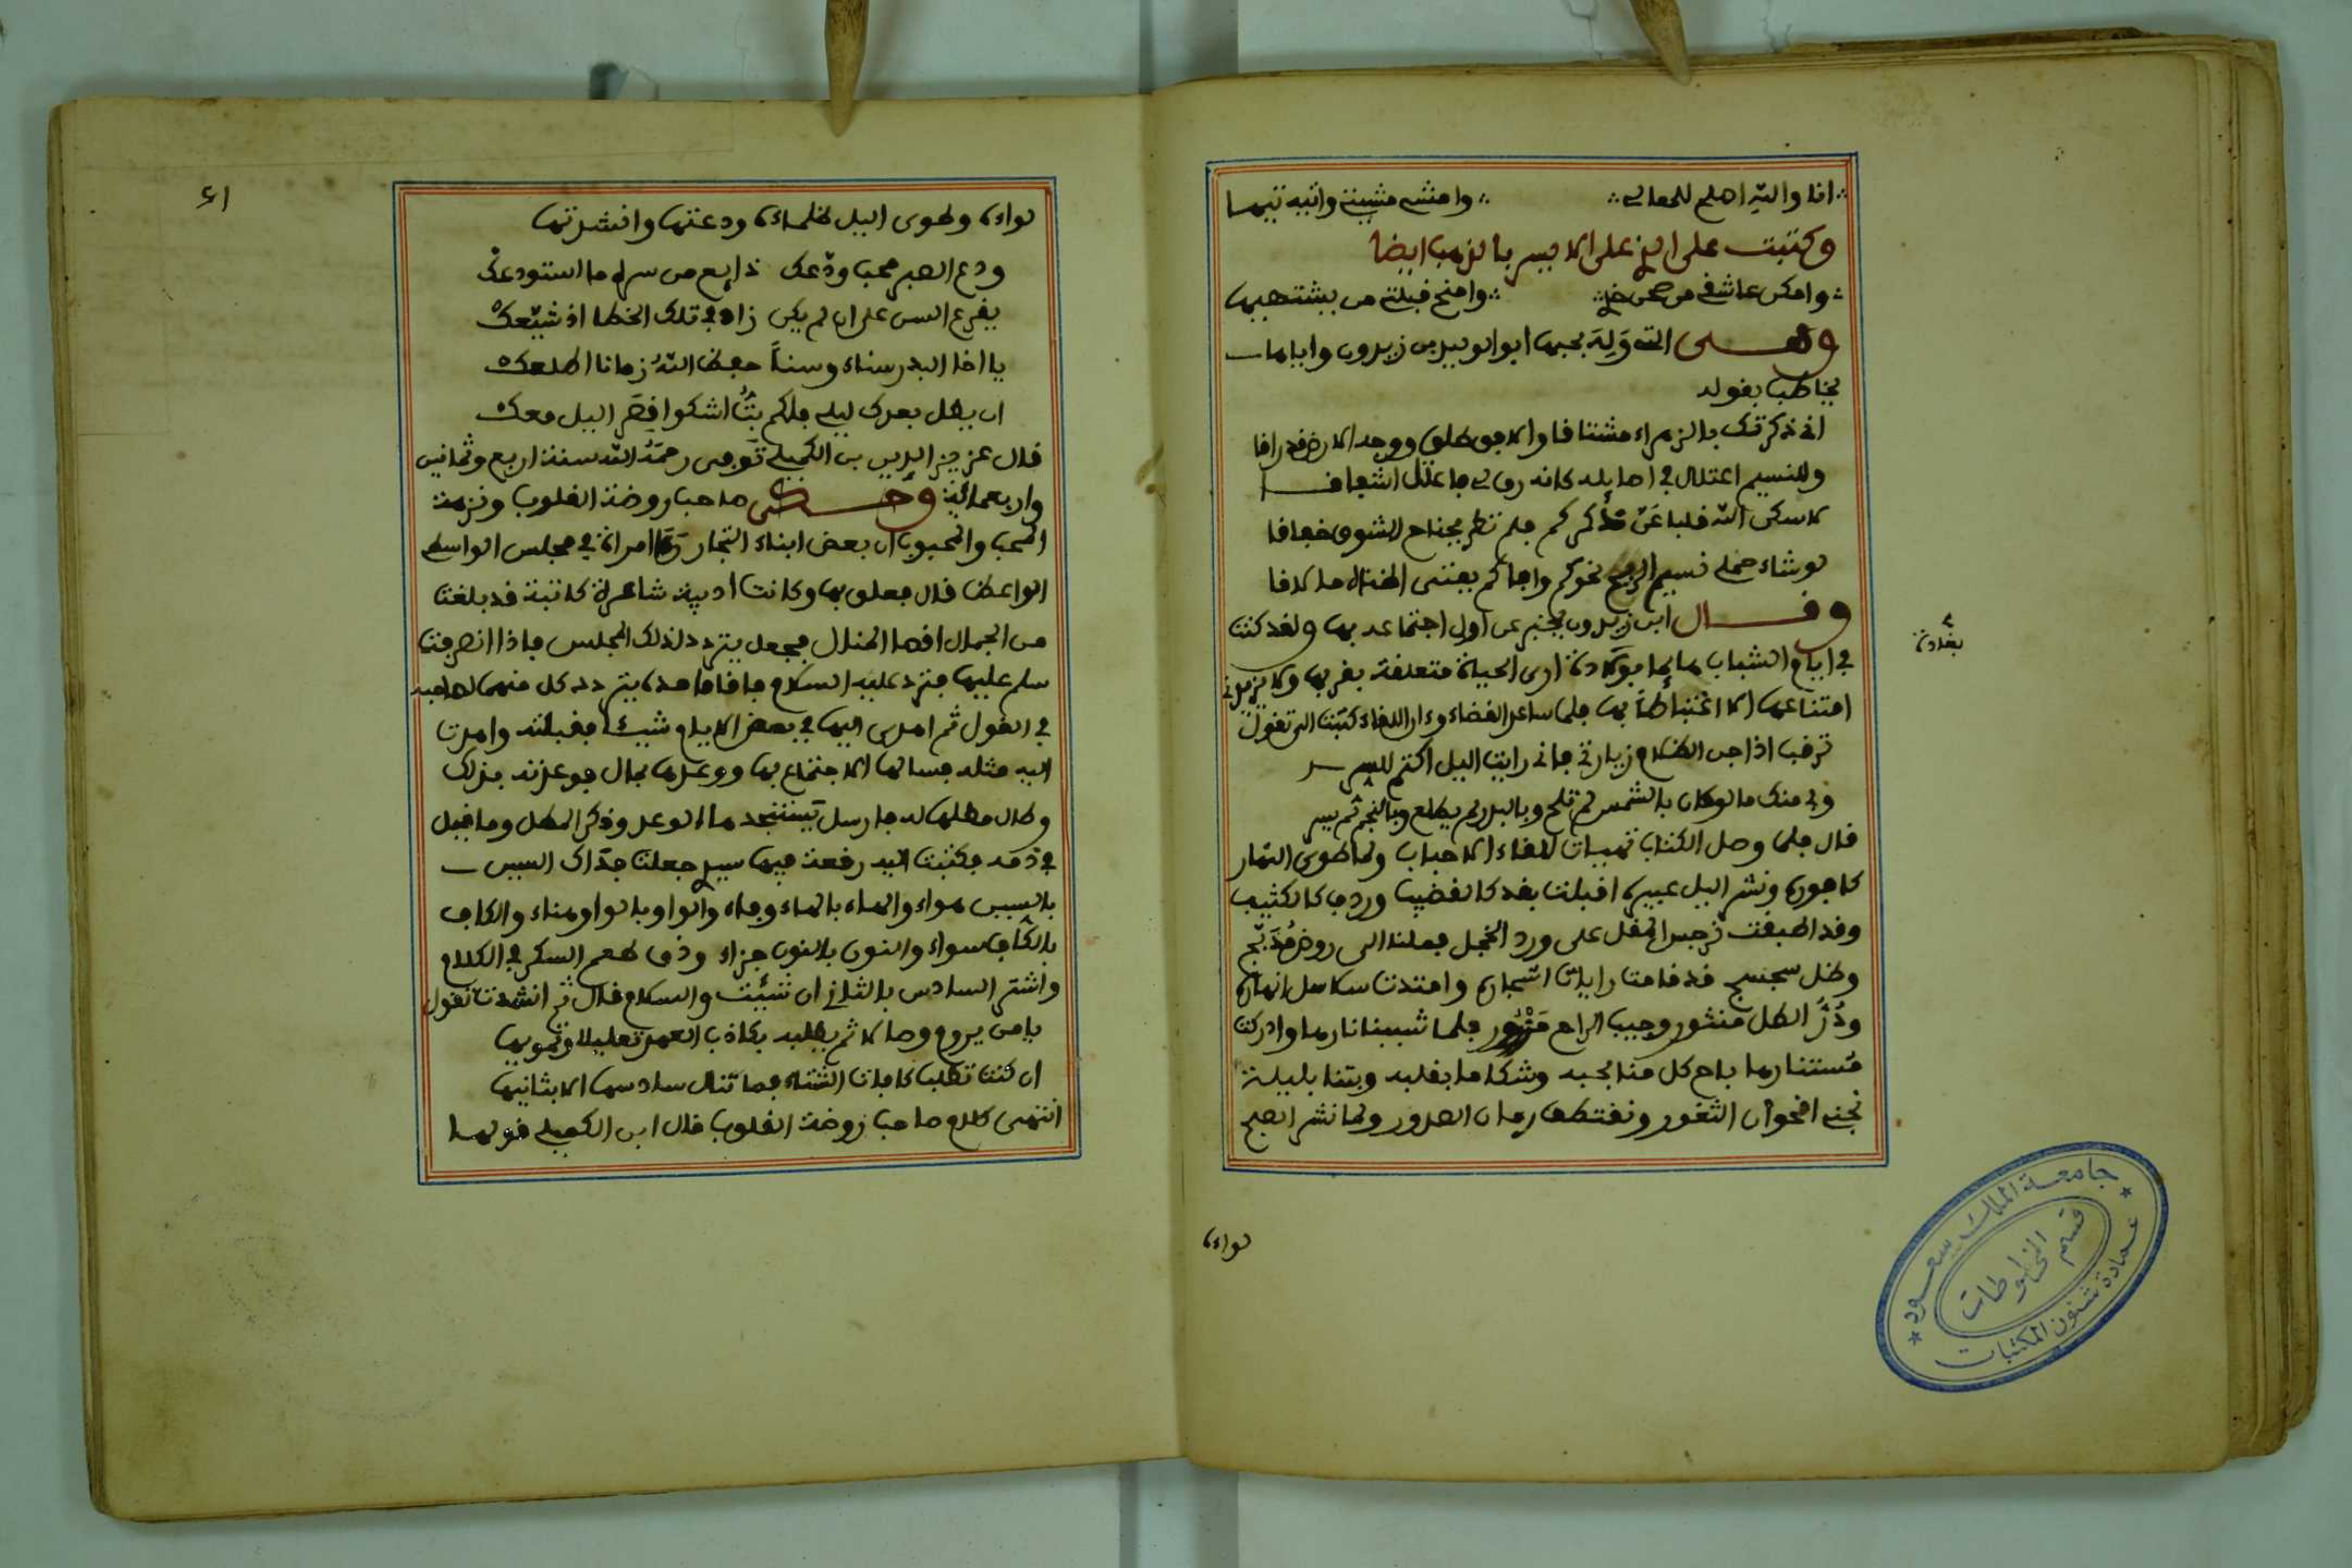 انا والله اصلح للمعالي ∴ وامشي مشيتي واتيه تيها
وكتبت على الذي على الايسر بالذهب ايضا
وامكن عاشقي من صحن خدي ∴ وامنح قبلتي من يشتهيها
وهـــي التي وَلِهَ بحبها ابو الوليد بن زيدون واياها
يخاطب بقوله
اني ذكرتك بالزهراء مشتاقا والافق طلق ووجه الارض قد راقا
وللنسيم اعتلال في اصايله كانه رق لي فاعتل اشفاقـــا
لا سكن الله قلبا عَنَّ ذكركم فلم يطر بجناح الشوق خفاقا
لو شاء حملي نسيم الريح نحوكم وافاكم بفتى اضناه ما لاقا
وقـــال ابن زيدون يخبر عن اول اجتماعه بها ولقد كنت
في ايام الشباب هائما بولادة ارى الحياة متعلقة بقربها ولا يزيدني
بغادة
امتناعها الا اغتباطاً بها فلما ساعد القضاء ودار اللقاء كتبت الي تقول
ترقب اذا جن الظلام زيارتي فاني رايت اليل اكتم للسر
وبي منك ما لو كان بالشمس لم تلح وبالبدر لم يطلع وبالنجم لم يسر
قال فلما وصل الكتاب تهيات للقاء الاحباب ولما طوى النهار
كافوره ونشر اليل عبيره اقبلت بقد كالقضيب وردف كالكثيب
وقد اطبقت نرجس المقل على ورد الخجل فملنا الى روض مُدَبَّج
وظل سجسج قد قامت رايات اشجاره وامتدت سلاسل انهاره
ودُرُّ الطل منثور وجيب الراح مَزْرُور فلما شببنا نارها وادركت
مستنارها باح كل منا بحبه وشكا ما بقلبه وبتنا بليلة
نجني اقحوان الثغور ونقتطف رمان الصدور ولما نشر الصبح
لواءه
٤١
لواءه وطوى اليل ظلماءه ودعتها وانشدتها
ودع الصبر محب ودّعك ذايع من سره ما استودعك
يقرع السن على ان لم يكن زاد في تلك الخطا اذ شيّعك
يا اخا البدر سناء وسناً حفظ اللهُ زمانا اطلعك
ان يطل بعدك ليلي فلكم بتُّ اشكوا قِصَر اليل معك
قال عز الدين بن الكميلي توفي رحمه الله سنة اربع وثمانين
واربعمائة وحـــكى صاحب روضة القلوب ونزهة
المحب والمحبوب ان بعض ابناء التجار راى امراة في مجلس الواسطي
الواعظ قال فعلق بها وكانت اديبة شاعرة كاتبة قد بلغت
من الجمال اقصا المنال فجعل يتردد لذلك المجلس فاذا انصرفت
سلم عليها فترد عليه السلام فاقاما مدة يتردد كل منهما لصاحبه
في القول ثم اهدى اليها في بعض الايام شيئا فقبلته واهدت
اليه مثله فسالها الاجتماع بها ووعدها بمال فوعدته بذلك
وطال مطلها له فارسل يستنجدها الوعد وذكر المطل وما قيل
في ذمه فكتبت اليه رقعة فيها سيدي جعلت فداك السين
بالسين هواء والهاء بالهاء وفاء والواو بالواو هناء والكاف
بالكاف سواء والنون بالنون جزاء وذق طعم السكر في الكلام
واشتر السادس بالثاني ان شئت والسلام قال ثم انشدت تقول
يا من يروم وصالا ثم يطلبه بكاذب العهد تعليلا وتمويها
ان كنت تطلب كافات الشتاء فما تنال سادسها الا بثانيها
انتهى كلام صاحب روضة القلوب قال ابن الكميلي قولها
جامعة الملك سعود
قسم المخطوطات
عمادة شئون المكتبات